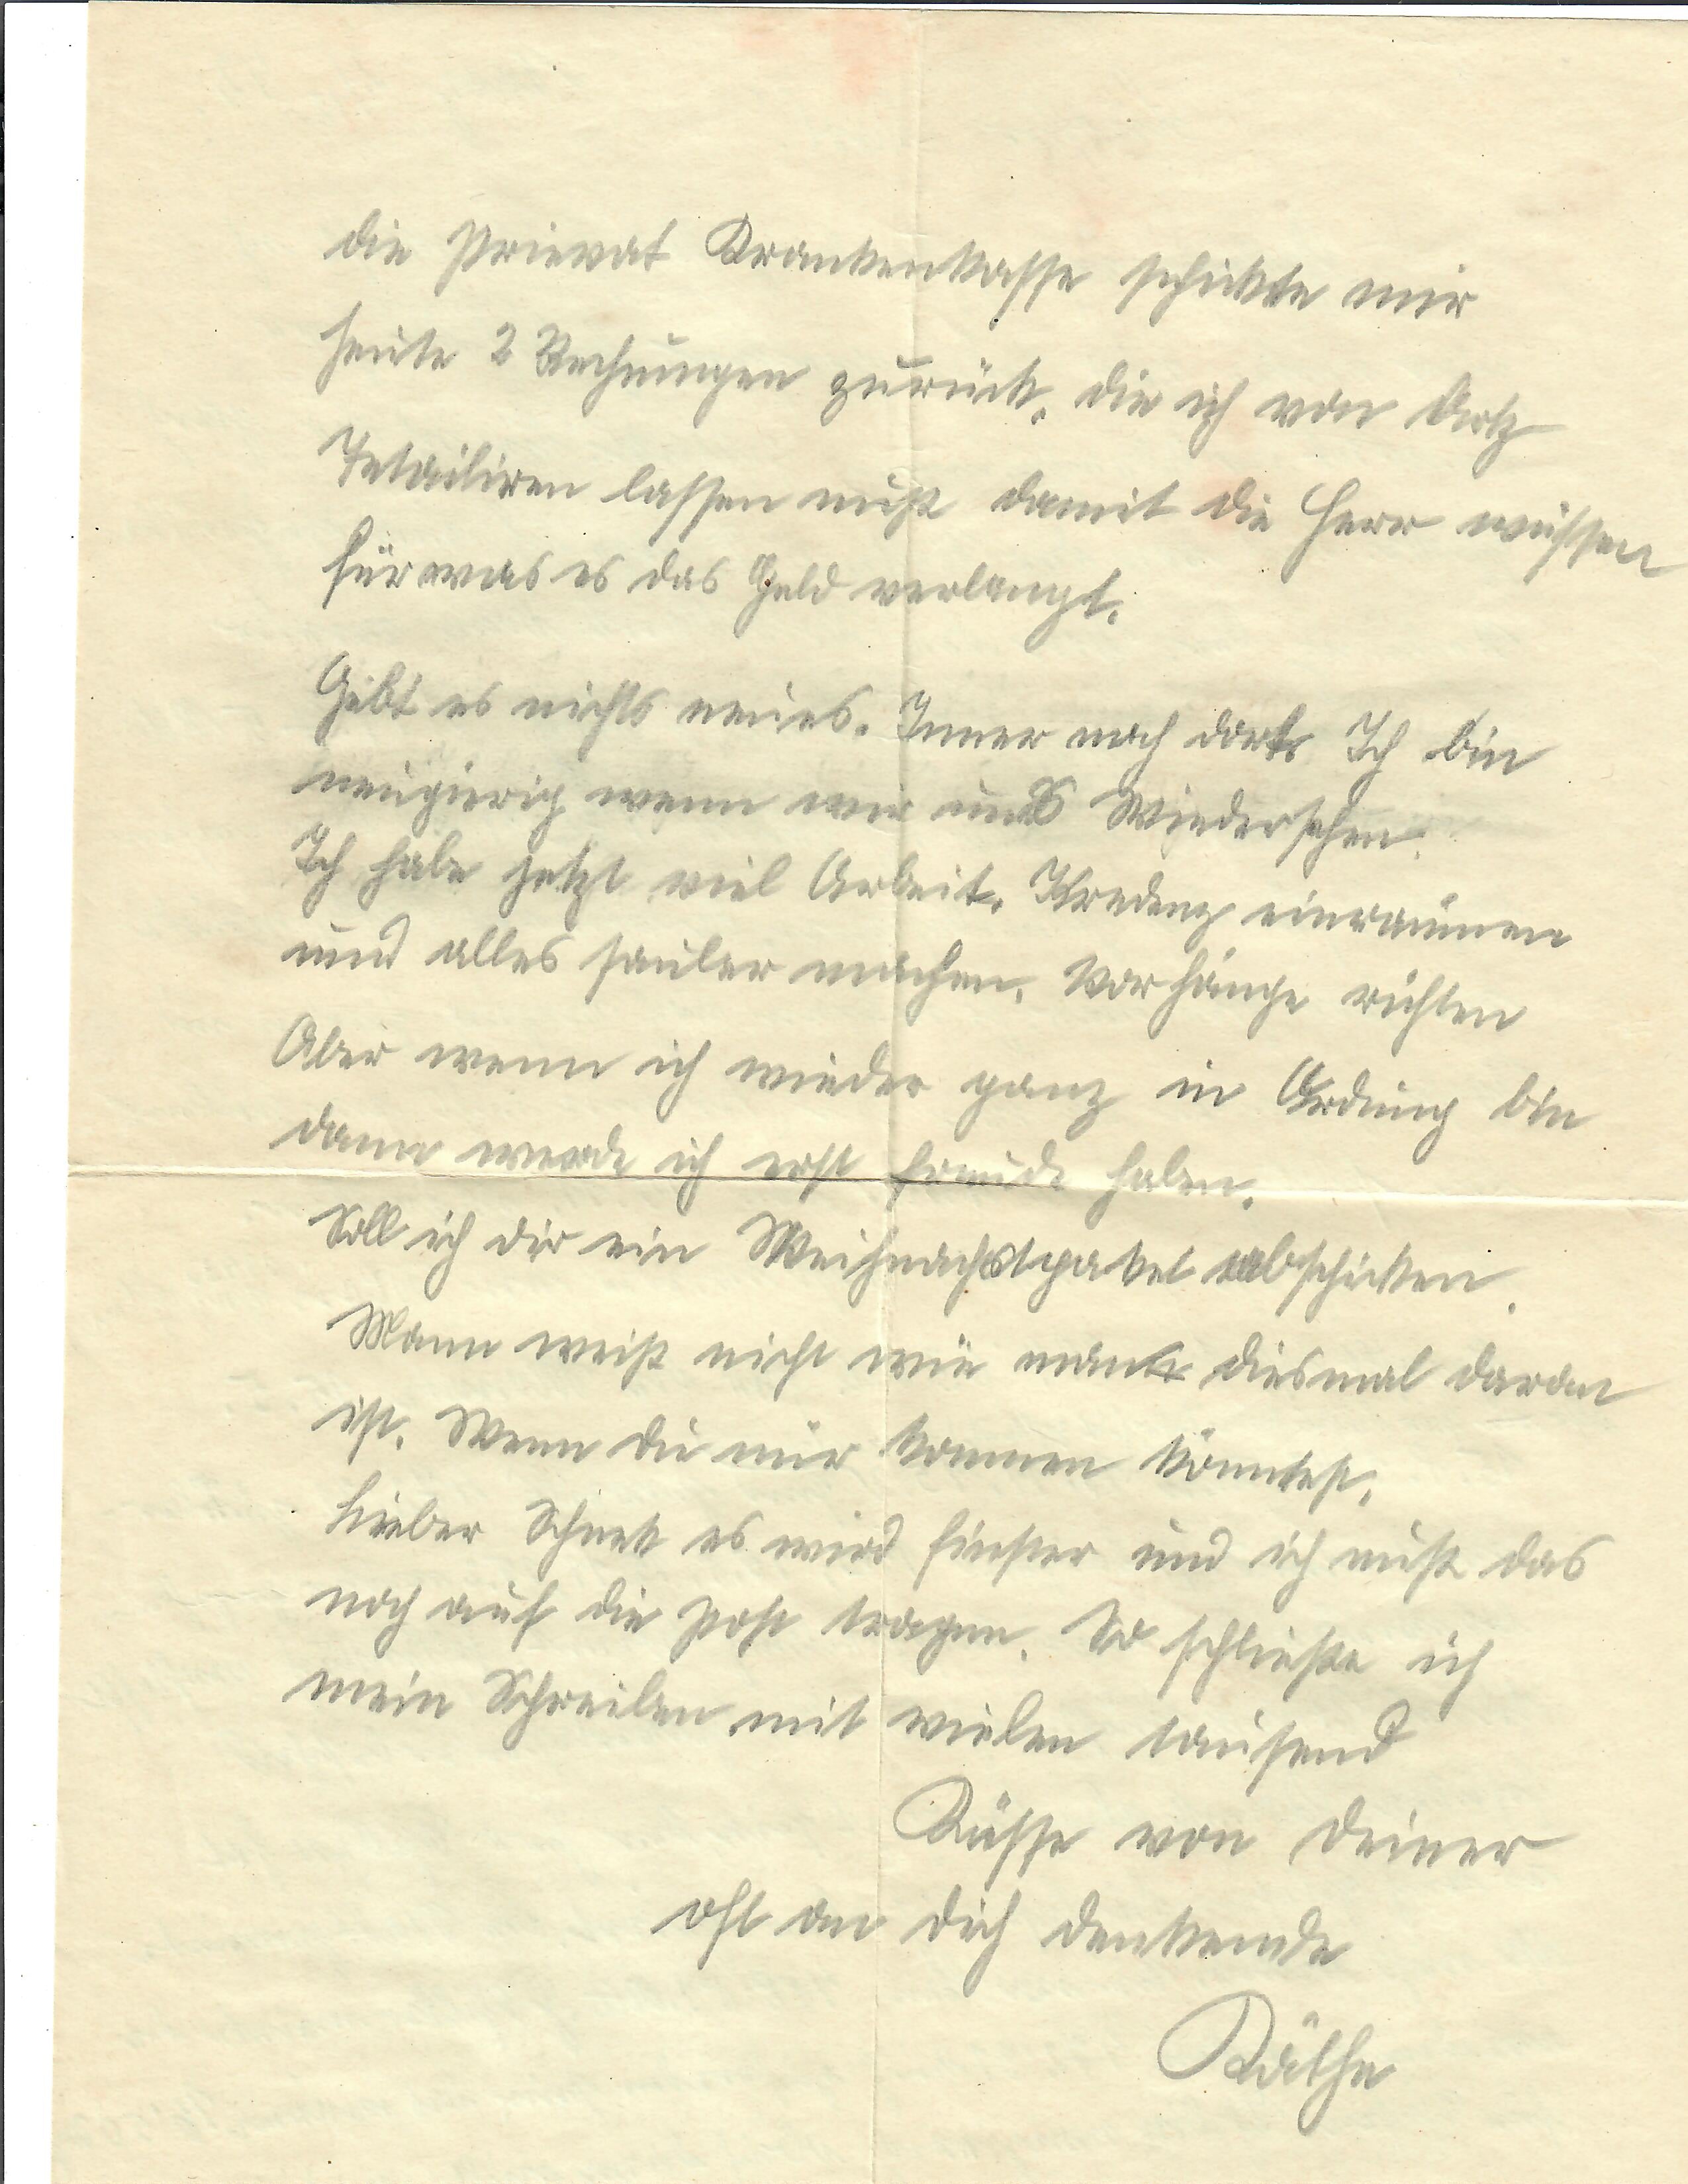 die Prievat Krankenkasse schikte mir
heute 2 Rechnungen zurück, die ich von Artz
Tetailiren lassen muß damit die Herr wissen
für was es das Geld verlangt.
Gibt es nichts neues. Immer noch dort. Ich bin
neugierig wenn wir uns Wiedersehen.
Ich habe jetzt viel Arbeit. Kredenz einraumen
und alles sauber machen. Vorhänge richten
Aber wenn ich wieder ganz in Ordnung bin
dann werde ich erst freude haben.
Soll ich dir ein Weihnachstpaket abschicken.
Mann weiß nicht wie man diesmal daran
ist. Wenn du nur kommen könntest.
Lieber es wird finster und ich muß das
noch auf die Post tragen. So schließe ich
mein Schreiben mit vielen tausend
Küsse von deiner
oft an dich denkende
Käthe